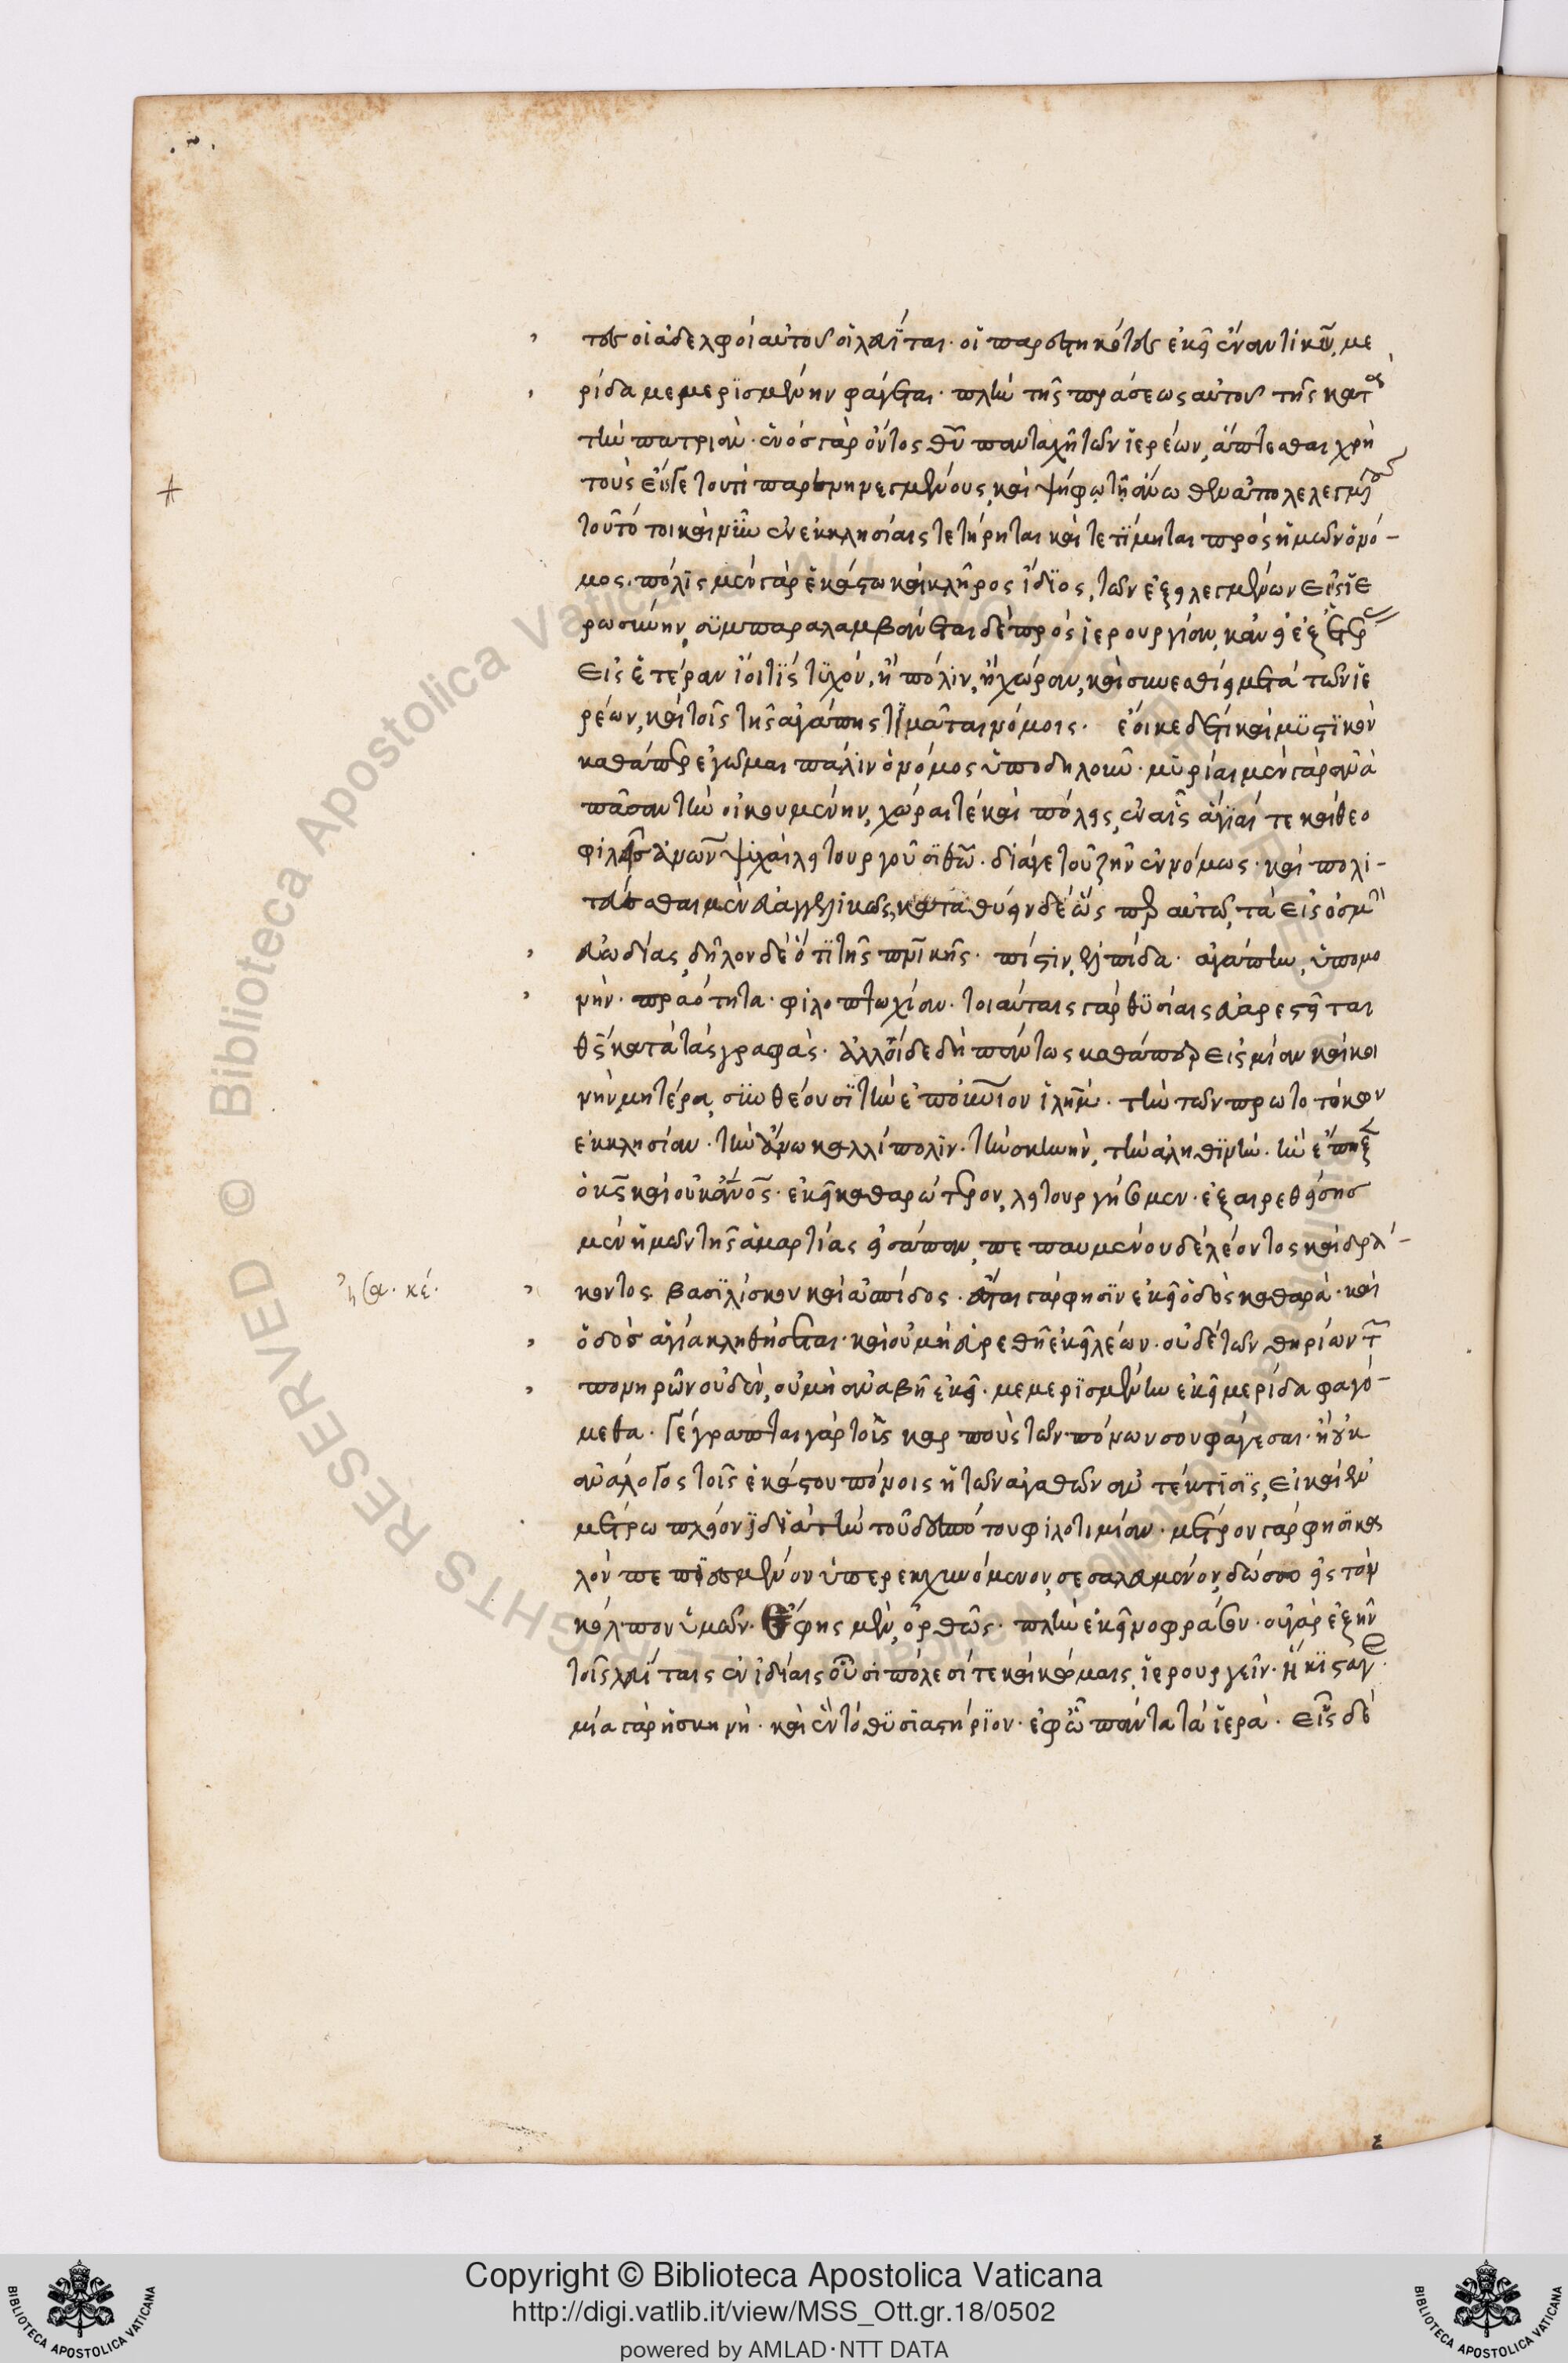 τες οἱ ἀδελφοὶ αὐτοῦ οἱ λευῖται· οἱ παρεστηκότες ἐκεῖ ἐναντίον κυ, με
ρίδα μεμερϊσμένην φάγεται· πλὴν τῆς πράσεως αὐτοῦ τῆς κατὰ
τὴν πατριάν· ἑνὸς γὰρ ὄντος θυ πανταχῆ τῶν ἱερέων, ἅπτεσθαι χρὴ
τοὺς
τοῦτό τοι καὶ νῦν ἐν ἐκκλησίαις τετήρηται καὶ τετίμηται πρὸς ἡμῶν ὁ νό-
μος. πόλις μὲν γὰρ ἑκάστω καὶ κλῆρος ἴδϊος, τῶν ἐξειλεγμένων εἰς ἱε
ρωσύνην, συμπαραλαμβάνεται δὲ πρὸς ἱερουργίαν, κἂν εἰ ἐξ ἑτέρας
εἰς ἑτέραν ἴοι τὶς τυχόν, ἢ πόλιν, ἢ χώραν, καὶ συνεσθίει μετὰ τῶν ἱε
ρέων, καὶ τοῖς τῆς ἀγάπης τιμᾶται νόμοις. ἔοικε δέ τι καὶ μυστϊκὸν
καθάπερ ἐγῶμαι πάλιν ὁ νόμος ὑποδηλοῦν· μυρίαι μὲν γὰρ ἀνὰ
πᾶσαν τὴν οἰκουμένην, χῶραι τὲ καὶ πόλεις, ἐν αἷς ἅγιαί τε καὶ θεο
φιλεῖς ἀνων ψυχαὶ λειτουργοῦσι θῶ· διά γε τοῦ ζῆν ἐννόμως· καὶ πολι-
τεύεσθαι μὲν εὐαγγελικῶς, καταθύειν δὲ ὥσπερ αὐτῶ, τὰ εἰς ὀσμὴν
εὐωδίας, δῆλον δὲ ὅτι τῆς πνικῆς· πίστιν, ἐλπίδα· ἀγάπην, ὑπομο
νὴν· πραότητα· φιλοπτωχίαν· τοιαύταις γὰρ θυσίαις εὐαρεστεῖται
θς κατὰ τὰς γραφὰς· ἀλλ' οἵδε δὴ πάντως καθάπερ εἰς μίαν καὶ κοι
νὴν μητέρα, συνθέουσι τὴν ἐπουράνιον ἱλημ· τὴν τῶν πρωτοτόκων
ἐκκλησίαν· τὴν ἄνω καλλίπολιν· τὴν σκηνὴν, τὴν ἀληθϊνὴν· ἣν ἔπηξεν
ὁ κς καὶ οὐκ ἄνος· ἐκεῖ καθαρώτερον, λειτουργήσομεν· ἐξαιρεθείσης
μὲν ἡμῶν τῆς ἁμαρτίας εἰσάπαν, πεπαυμένου δὲ λέοντος καὶ δρά-
κοντος βασιλίσκου καὶ ἀσπίδος· ἔσται γὰρ φησὶν ἐκεῖ ὁδὸς καθαρὰ· καὶ
ὁδὸς ἁγία κληθήσεται· καὶ οὐ μὴ εὑρεθῆ ἐκεῖ λέων· οὐδὲ τῶν θηρίων τῶν
πονηρῶν οὐδὲν, οὐ μὴ ἀναβῆ ἐκεῖ· μεμερισμένην ἐκεῖ μερίδα φαγό-
μεθα· γέγραπται γὰρ τοὺς καρποὺς τῶν πόνων σου φάγεσαι· ἢ οὐκ
ἀνάλογος τοῖς ἑκάστου πόνοις ἡ τῶν ἀγαθῶν ἀντέκτισις, εἰ καὶ ἐν
μέτρω πλεῖον ἢ διὰ τὴν τοῦ δεσπότου φιλοτιμίαν· μέτρον γὰρ φησὶ κα
λὸν πεπιεσμένον ὑπερεκχυνόμενον, σεσαλευμένον, δώσουσιν εἰς τὸν
κόλπον ὑμῶν. Ἔφης μὲν, ὀρθῶς· πλὴν ἐκεῖνο φράσον· οὐ γὰρ ἐξῆν
τοῖς λευίταις ἐν ἰδίαις οὖσι πόλεσί τε καὶ κώμαις, ἱερουργεῖν· ἥκιστά γε·
μία γὰρ ἡ σκηνὴ· καὶ ἓν τὸ θυσιαστήριον· ἐφ' ὧ πάντα τὰ ἱερὰ· εἷς δὲ